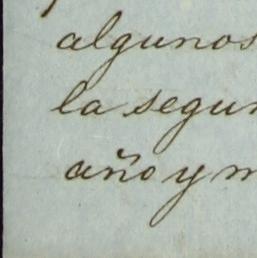 algunos
la segun
año y m